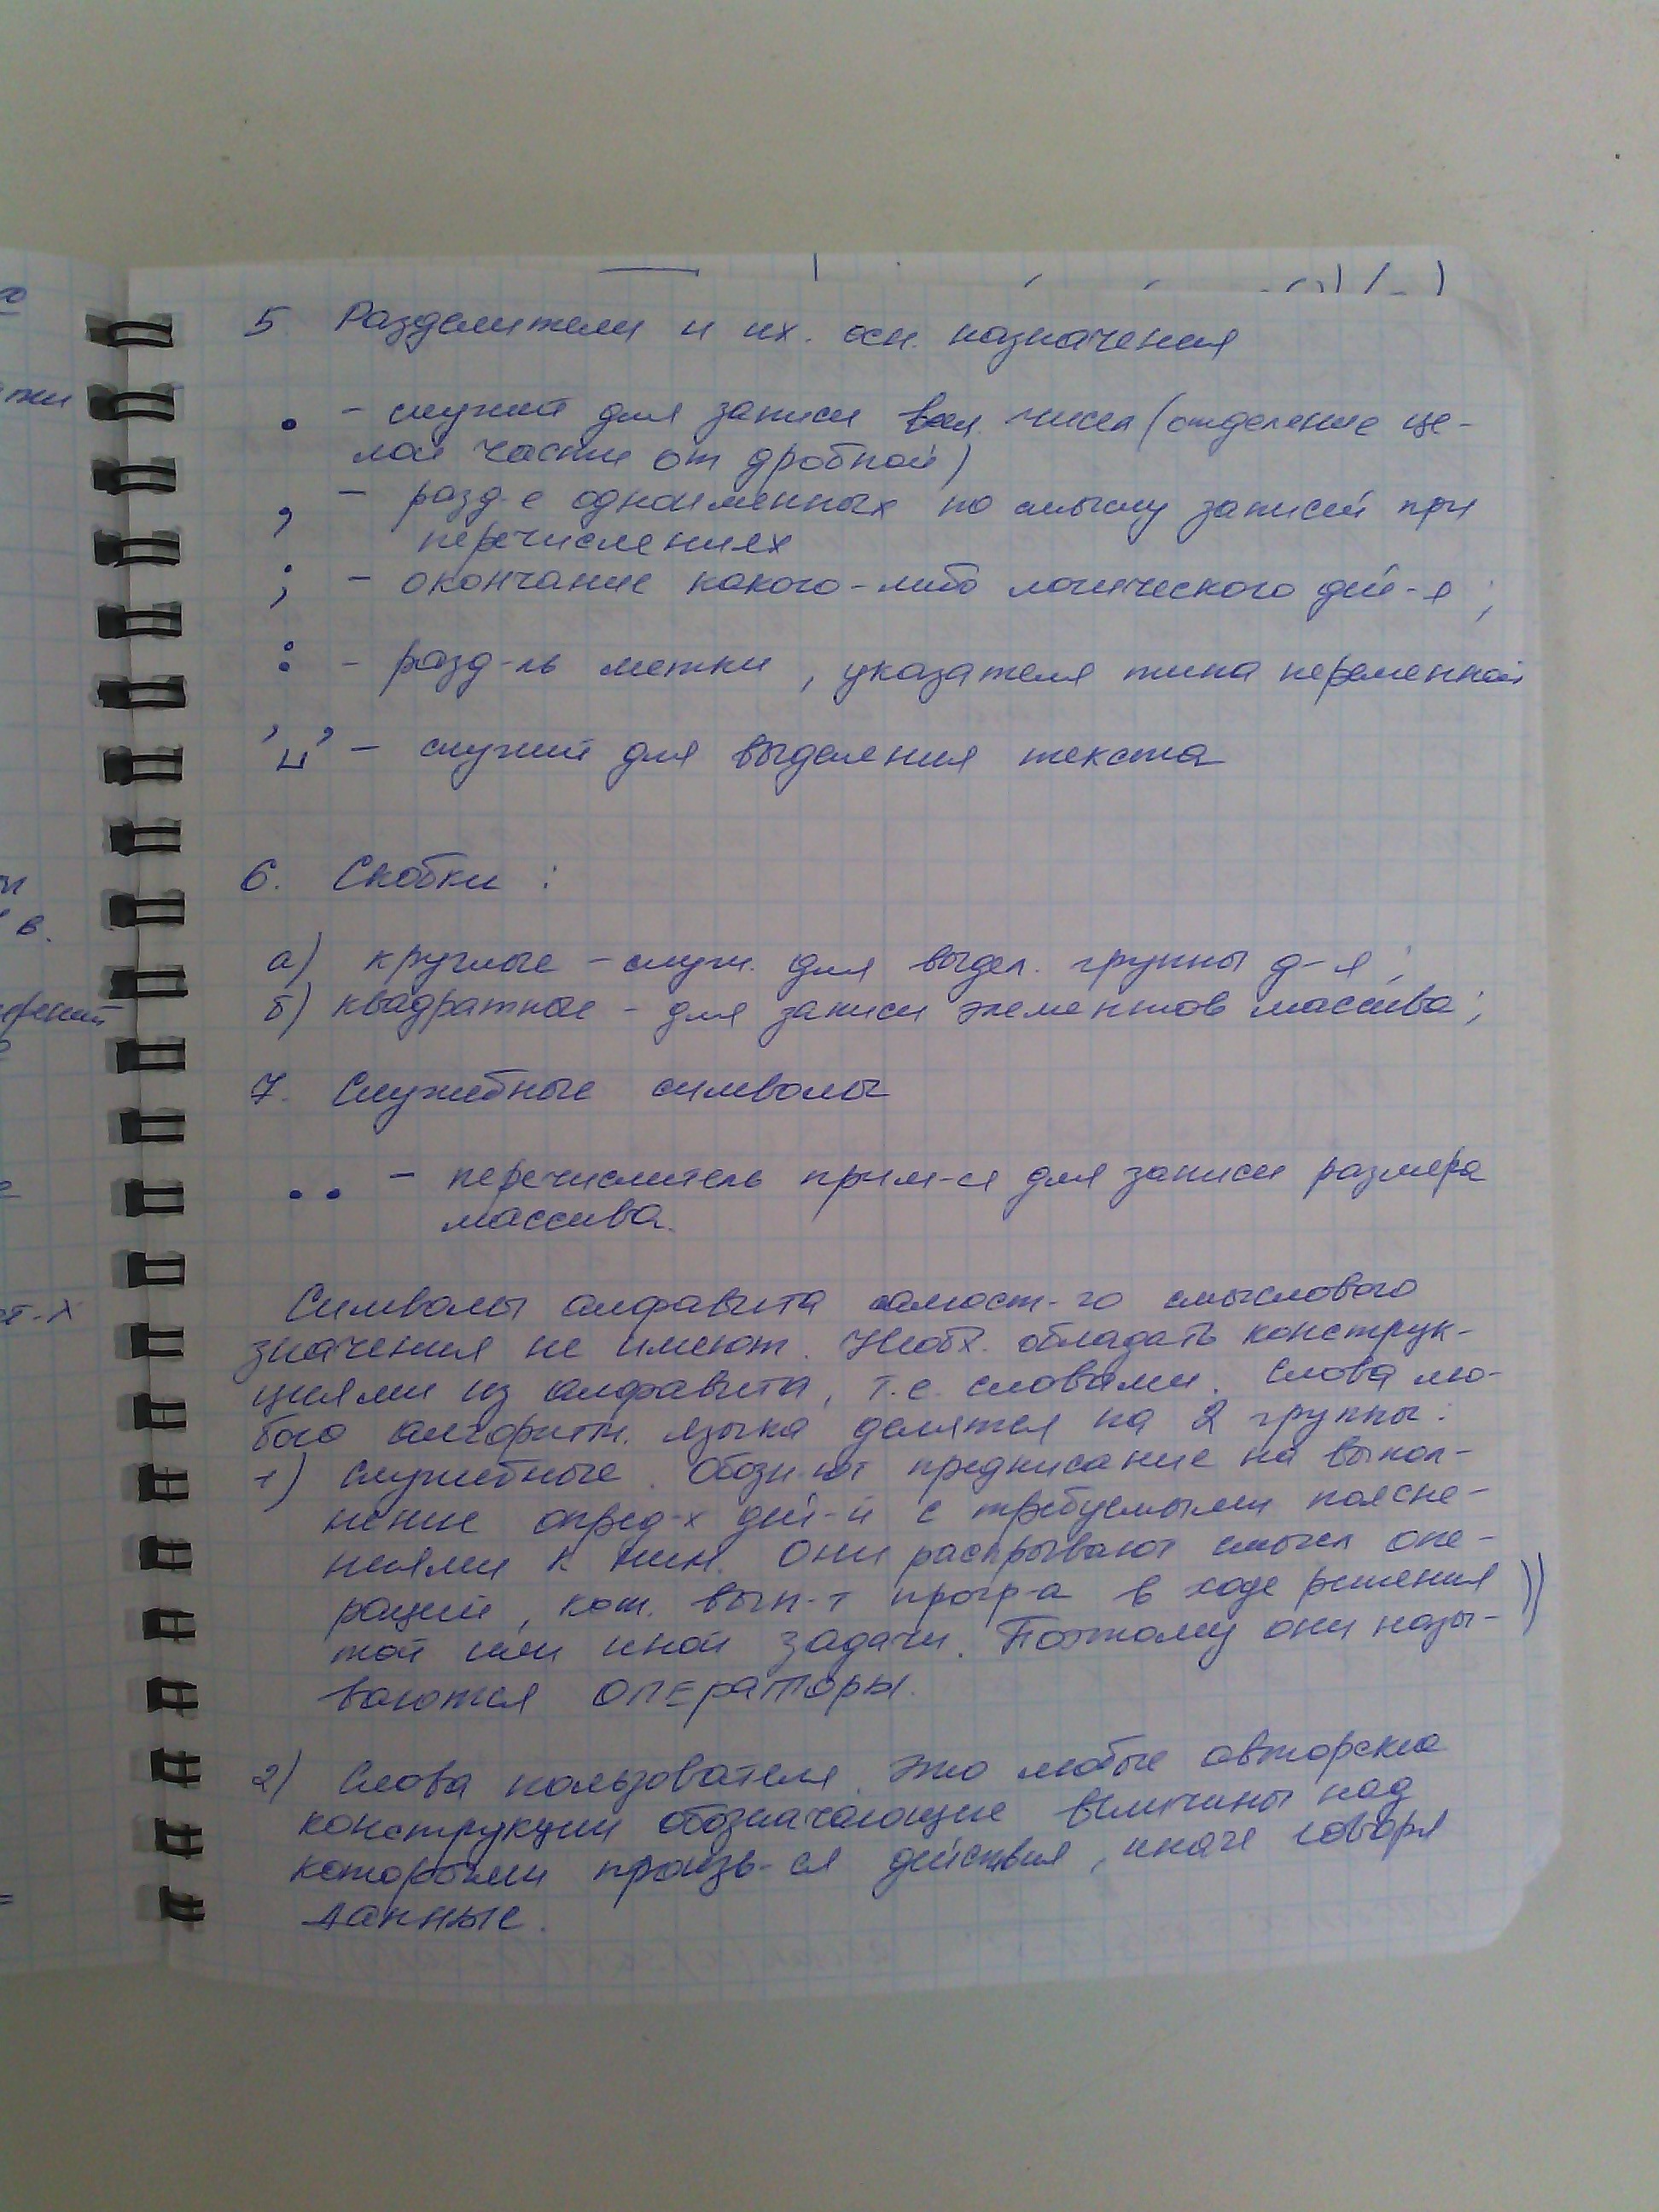 5. Разделители и их. осн. назначения
. - служит для записи вещ. чисел (отделение це-
лой части от дробной)
, - разд-е одноименных по смыслу записей при
перечислениях
; - окончание какого-либо логического дей-я;
: - разд-ль метки, указателя типа переменной
'⊔' - служит для выделения текста
6. Скобки :
а) круглые - служ. для выдел. группы д-я;
б) квадратные - для записи элементов массива;
7. Служебные символы
.. - перечислитель прим-ся для записи размера
массива.
Символы алфавита самост-го смыслового
значения не имеют. Необх. обладать конструк-
циями из алфавита, т.е. словами. Слова лю-
бого алгоритм. языка делятся на 2 группы:
1) Служебные. Обозн-ют предписание на выпол-
нение опред-х дей-й с требуемыми поясне-
ниями к ним. Они раскрывают смысл опе-
раций, кот. вып-т прогр-а в ходе решения
той или иной задачи. Поэтому они назы-
ваются ОПЕРАТОРЫ.
2) Слова пользователя. Это любые авторские
конструкции обозначающие величины над
которыми произв-ся действия, иначе говоря
данные.